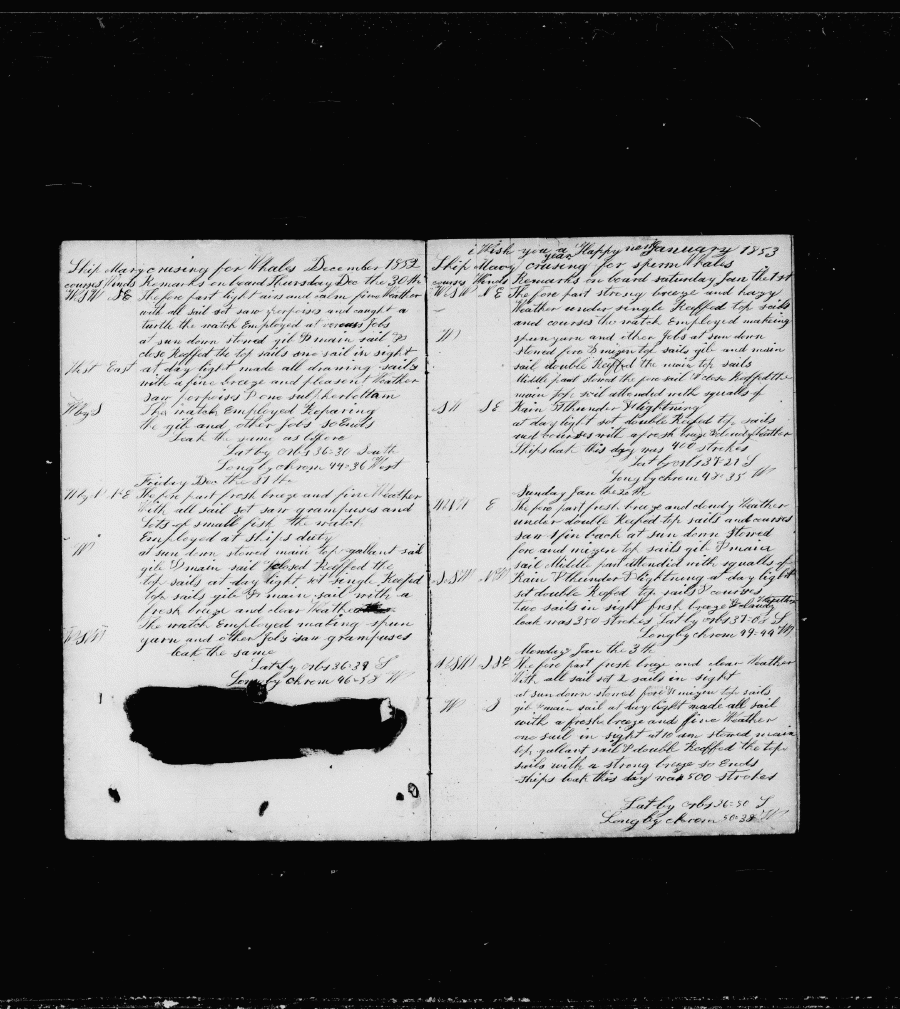 Ship Mary crusing for Whales December 1852
courses Winds Remarks on board Thursday Dec the 30th
WSW NE The fore part light airs and calm fine Weather
with all sail set saw porpoises and caught a
turtle the watch Employed at various Jobs
at sun down stowed gib & main sail &
close Reaffed the top sails one sail in sight
West East at day light made all drawing sails
with a fine breeze and pleasent Weather
saw porpoises & one sulpherbottam
W by S The watch Employed Reparing
the gib and other Jobs so Ends
Leak the same as before
Lat by obs 36-30 South
Long by chrom 44-36 West
Friday Dec the 31 th
W by N NE The fore part fresh breze and fine Weather
With all sail set saw grampuses and
Lots of small fish the watch
Employed at ships duty
W at sun down stowed main top gallant sail
gib & main sail closed Reaffed the
top sails at day light set single Reefed
top sails gib & main sail with a
fresh breze and clear Weather
The watch Employed making spun
WSW yarn and other Jobs saw grampuses
leak the same
Lat by obs 36-39 S
Long by chrom 46-58 W
i Wish you a Happy new year January 1853
Ship Mary crusing for sperm Whales
courses Winds Remarks on board saturday Jan the 1st
WSW NE The fore part strong breeze and hazy
Weather under single Reaffed top sails
and courses the watch Employed makeing
W spunyarn and other Jobs at sun down
stowed fore & mizen top sails gib and main
sail double Reaffed the main top sails
Middle part stowed the fore sail & close Reaffed the
main top sail attended with squalls of
SW SE Rain & Thunder & lightning
at day light set double Reefed top sails
and courses with a fresh breze & cloudy Weather
Ships leak this day was 400 strokes
Lat by obs 37-21 S
Long by chrom 48-35 W
Sunday Jan the 2th
E The fore part fresh breeze and cloudy Weather
under double Reefed top sails and courses
saw finback at sun down stowed
fore and mizen top sails gib & main
sail Middle part attended with squalls of
SSW Rain & thunder & lightning at day light
set double Reaffed top sails & courses
two sails in sight fresh breze & cloudy Weather
leak was 350 strokes Lat by obs 37-08 S
Long by chrom 49-44 W
Monday Jan the 3th
WSW The fore part fresh breze and clear Weather
With all sail set 2 sails in sight
at sun down stowed fore & mizen top sails
W S gib & main sail at day light made all sail
with a fresh breeze and fine Weather
one sail in sight at 10 am stowed main
top gallant sail & double Reaffed the top
sails with a strong breeze so Ends
ships leak this day was 500 strokes
Lat by obs 36-50 S
Long by chrom 50-38 W